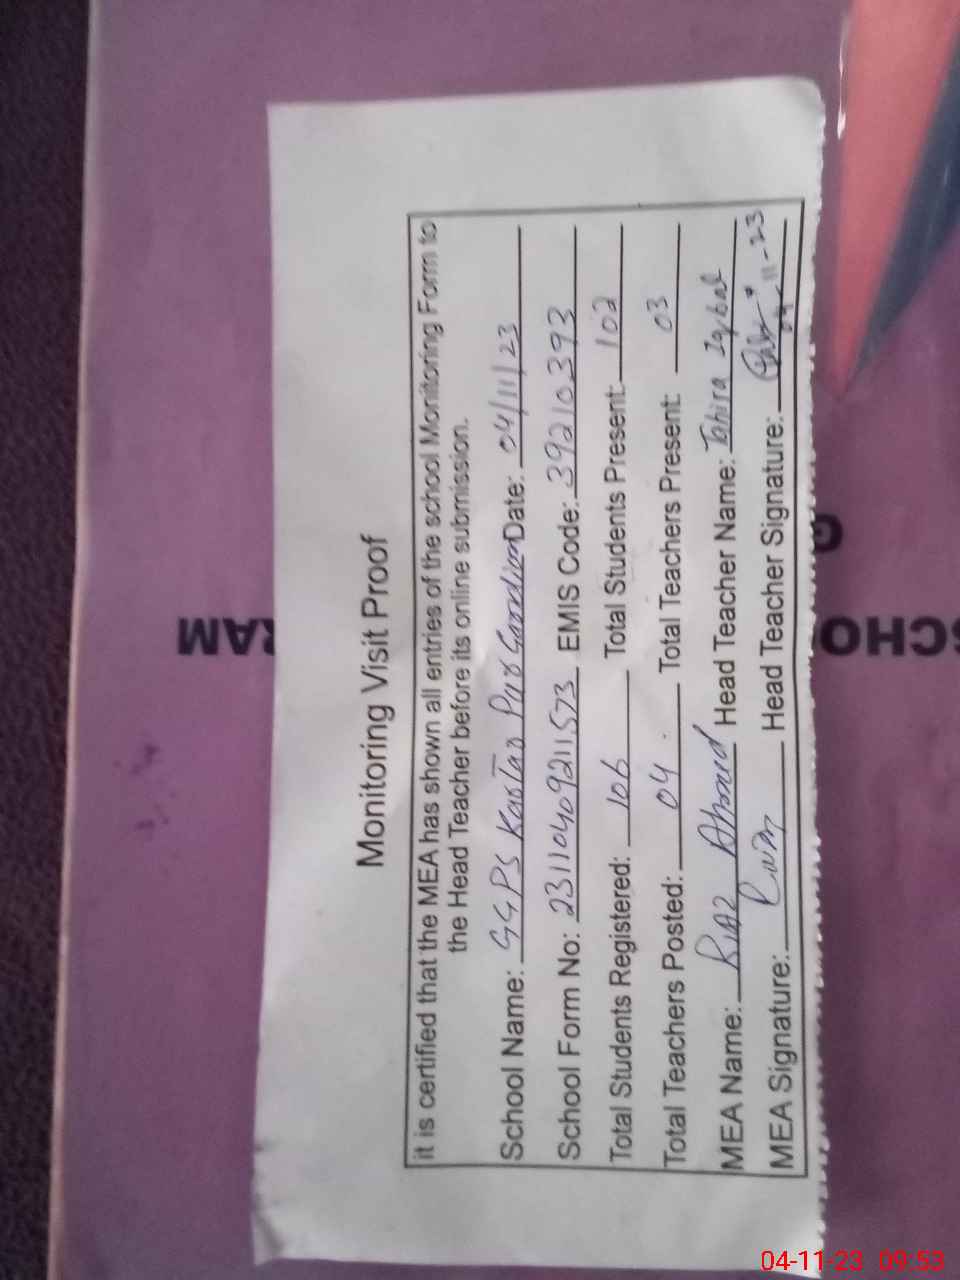 Monitoring Visit Proof
it is certified that the MEA has shown all entries of the school Monitoring Form to
the Head Teacher before its online submission.
School Name: GGPS Date: 04/11/23
School Form No: 23110409211573 EMIS Code: 39210393
Total Students Registered: 106 Total Students Present: 102
Total Teachers Posted: 04 Total Teachers Present: 03
MEA Name: RIAZ Ahmed Head Teacher Name: Tahira Iqbal
MEA Signature: Head Teacher Signature: 04-11-23
RAM
SCHO
04-11-23 09:53